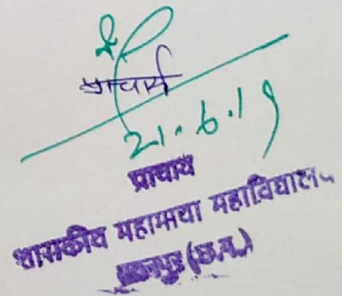 प्राचार्य
21.6.19
प्राचार्य
शासकीय महामाया महाविद्यालय
(छ.ग.)